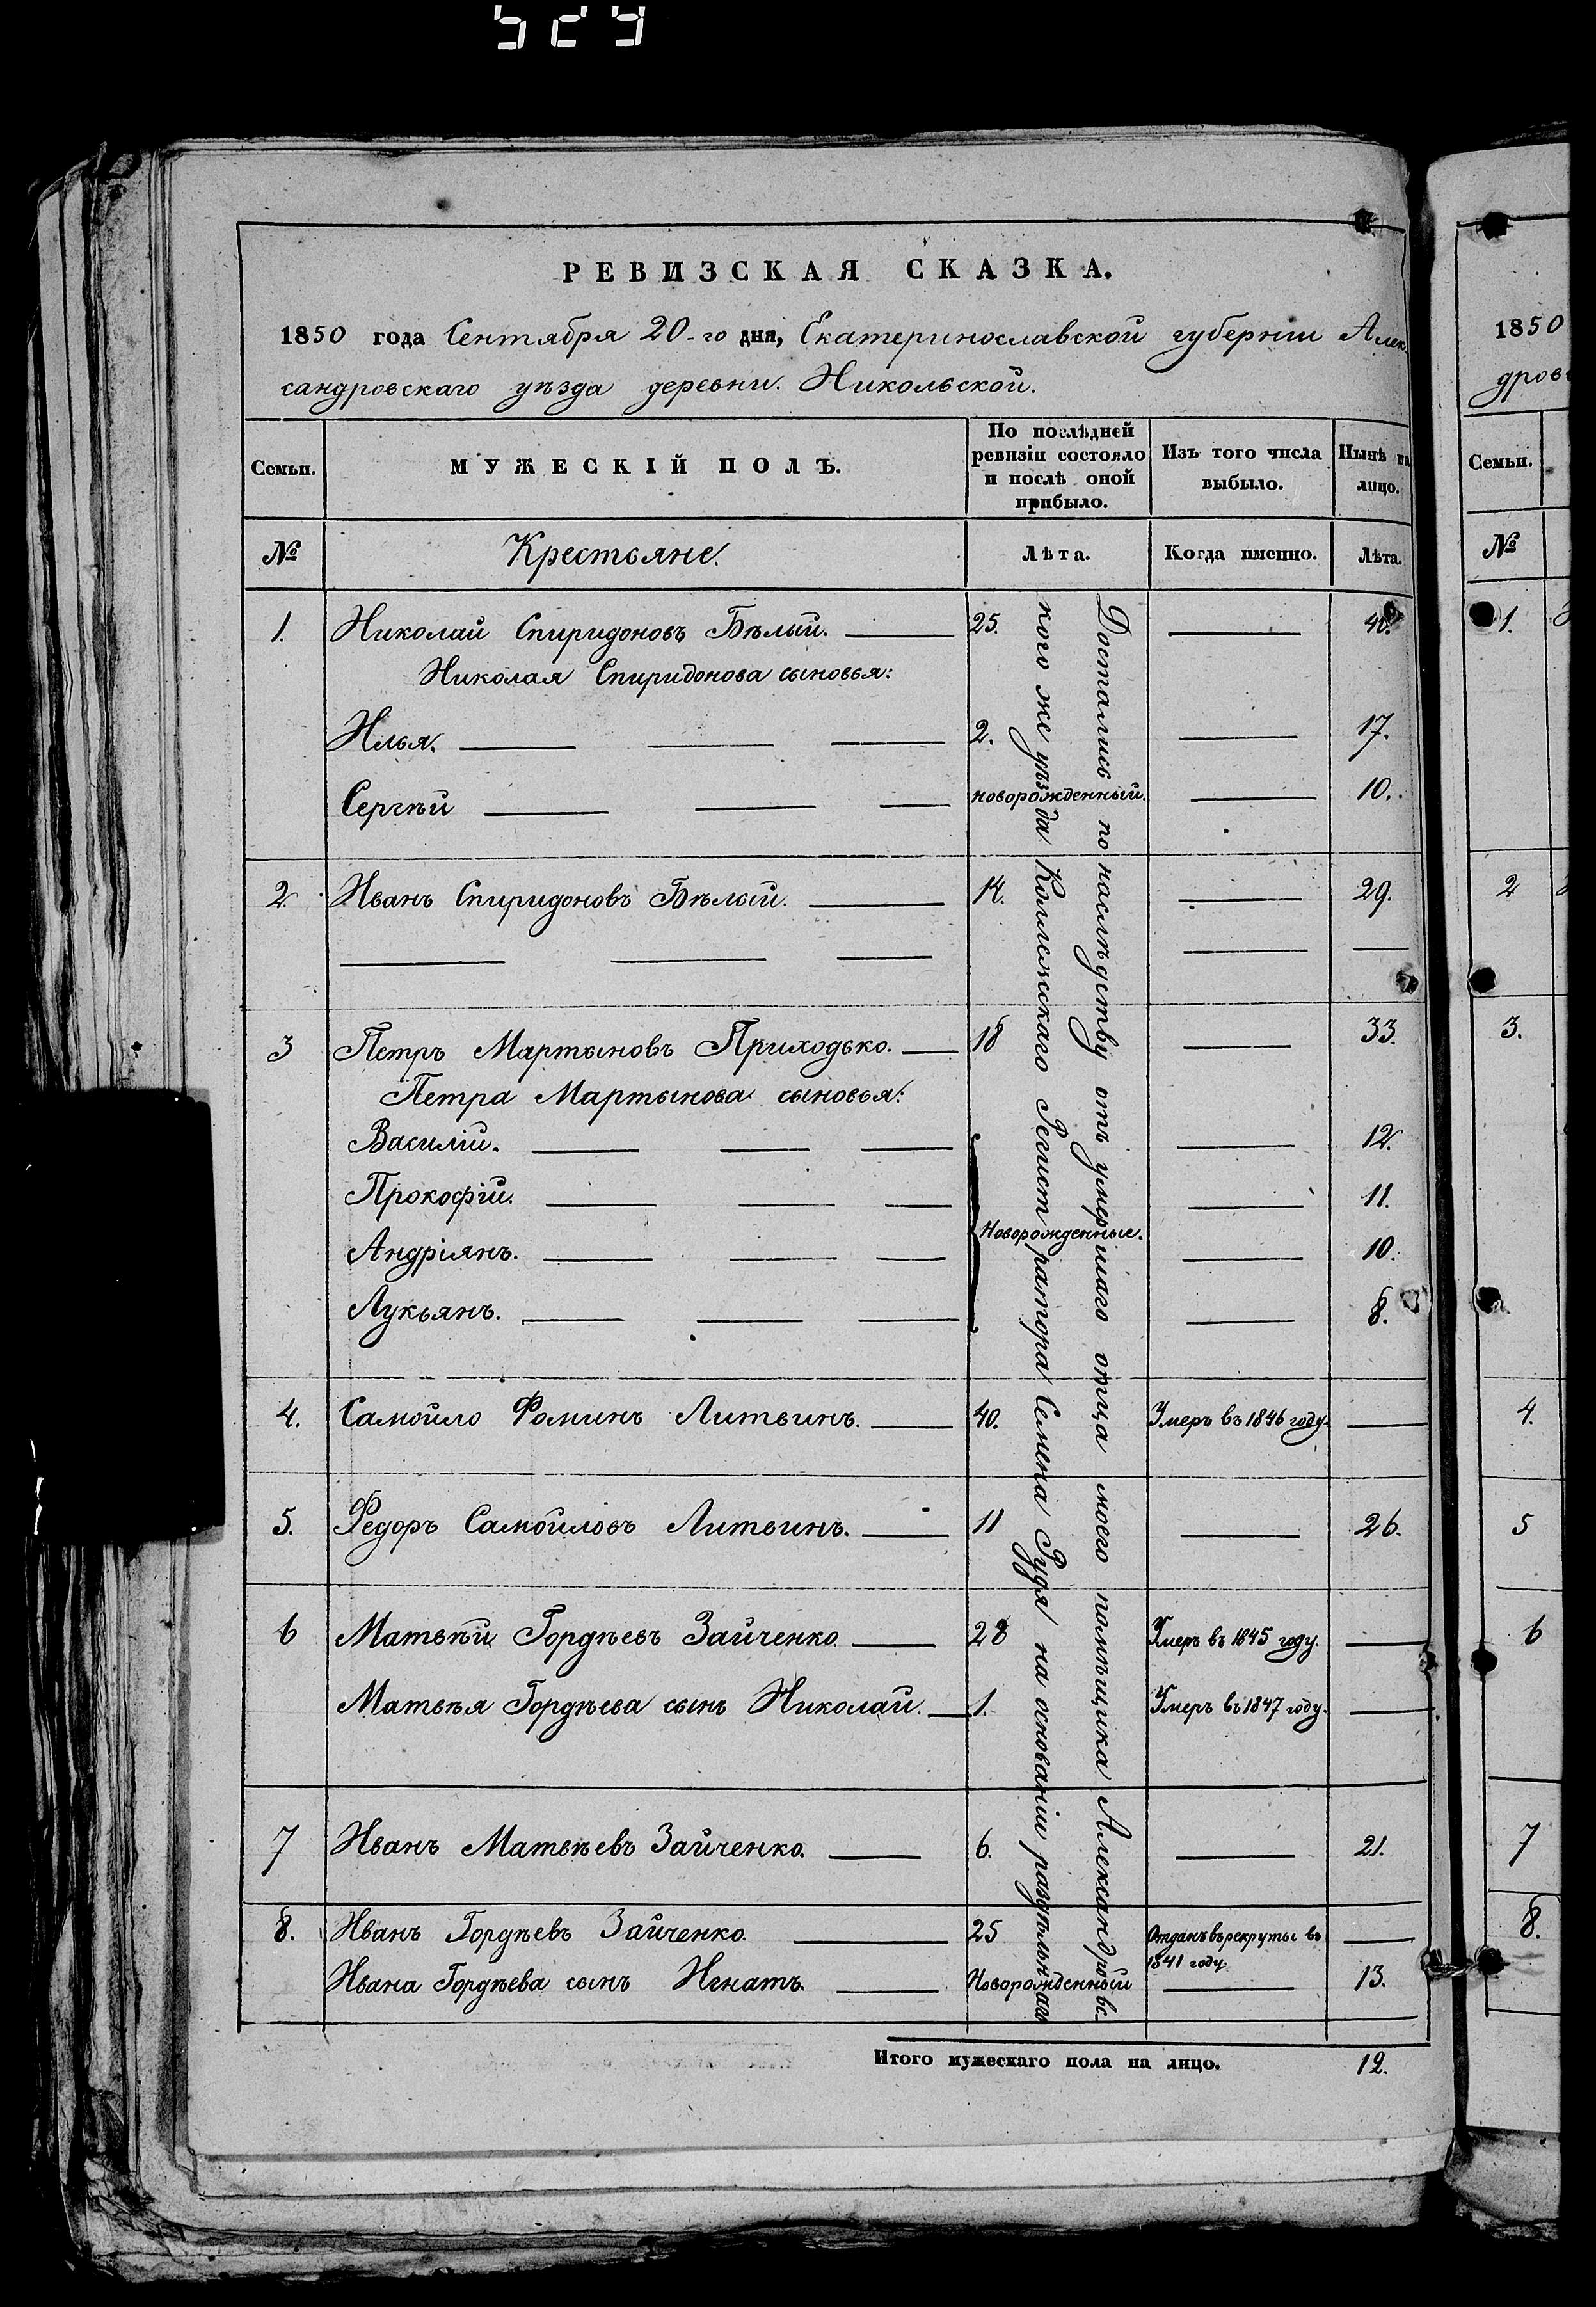 529
РЕВИЗСКАЯ СКАЗКА.
1850 года Сентября 20-го дня, Екатеринославской губернии Алек-
сандровскаго уѣзда деревни Никольской.
Семьи. МУЖЕСКІЙ ПОЛЪ. По послѣдней ревизіи состояло и послѣ оной прибыло. Изъ того числа выбыло. Нынѣ на лицо.
№ Крестьяне. Лѣта. Когда именно. Лѣта.
1. Николай Спиридоновъ Бѣлый. 25. 40.
Николая Спиридонова сыновья:
Илья. 2. 17.
Сергѣй новорожденный. 10.
2. Иванъ Спиридоновъ Бѣлый. 14. 29.
3 Петръ Мартыновъ Приходько. 18 33.
Петра Мартынова сыновья:
Василій. 12.
Прокофій. 11.
Новорожденные.
Андріянъ. 10.
Лукьянъ. 8.
4. Самойло Фоминъ Литвинъ. 40. Умеръ въ 1846 году.
5. Федоръ Самойловъ Литвинъ. 11 26.
6 Матвѣй Гордѣевъ Зайченко 28 Умеръ въ 1845 году.
Матвѣя Гордѣева сынъ Николай. 1. Умеръ въ 1847 году.
7 Иванъ Матвѣевъ Зайченко. 6. 21.
8. Иванъ Гордѣевъ Зайченко. 25 Отданъ въ рекруты въ
1841 году
Ивана Гордѣева сынъ Игнатъ. Новорожденный 13.
Достались по наслѣдству отъ умершаго отца моего помѣщика Александровс-
кого же уѣзда Коллежскаго Регистратора Семена Рудя на основаніи раздѣльнаго
Итого мужескаго пола на лицо. 12.
1850
дров
Семьи.
№
1.
2
3.
4.
5
6
7
8.